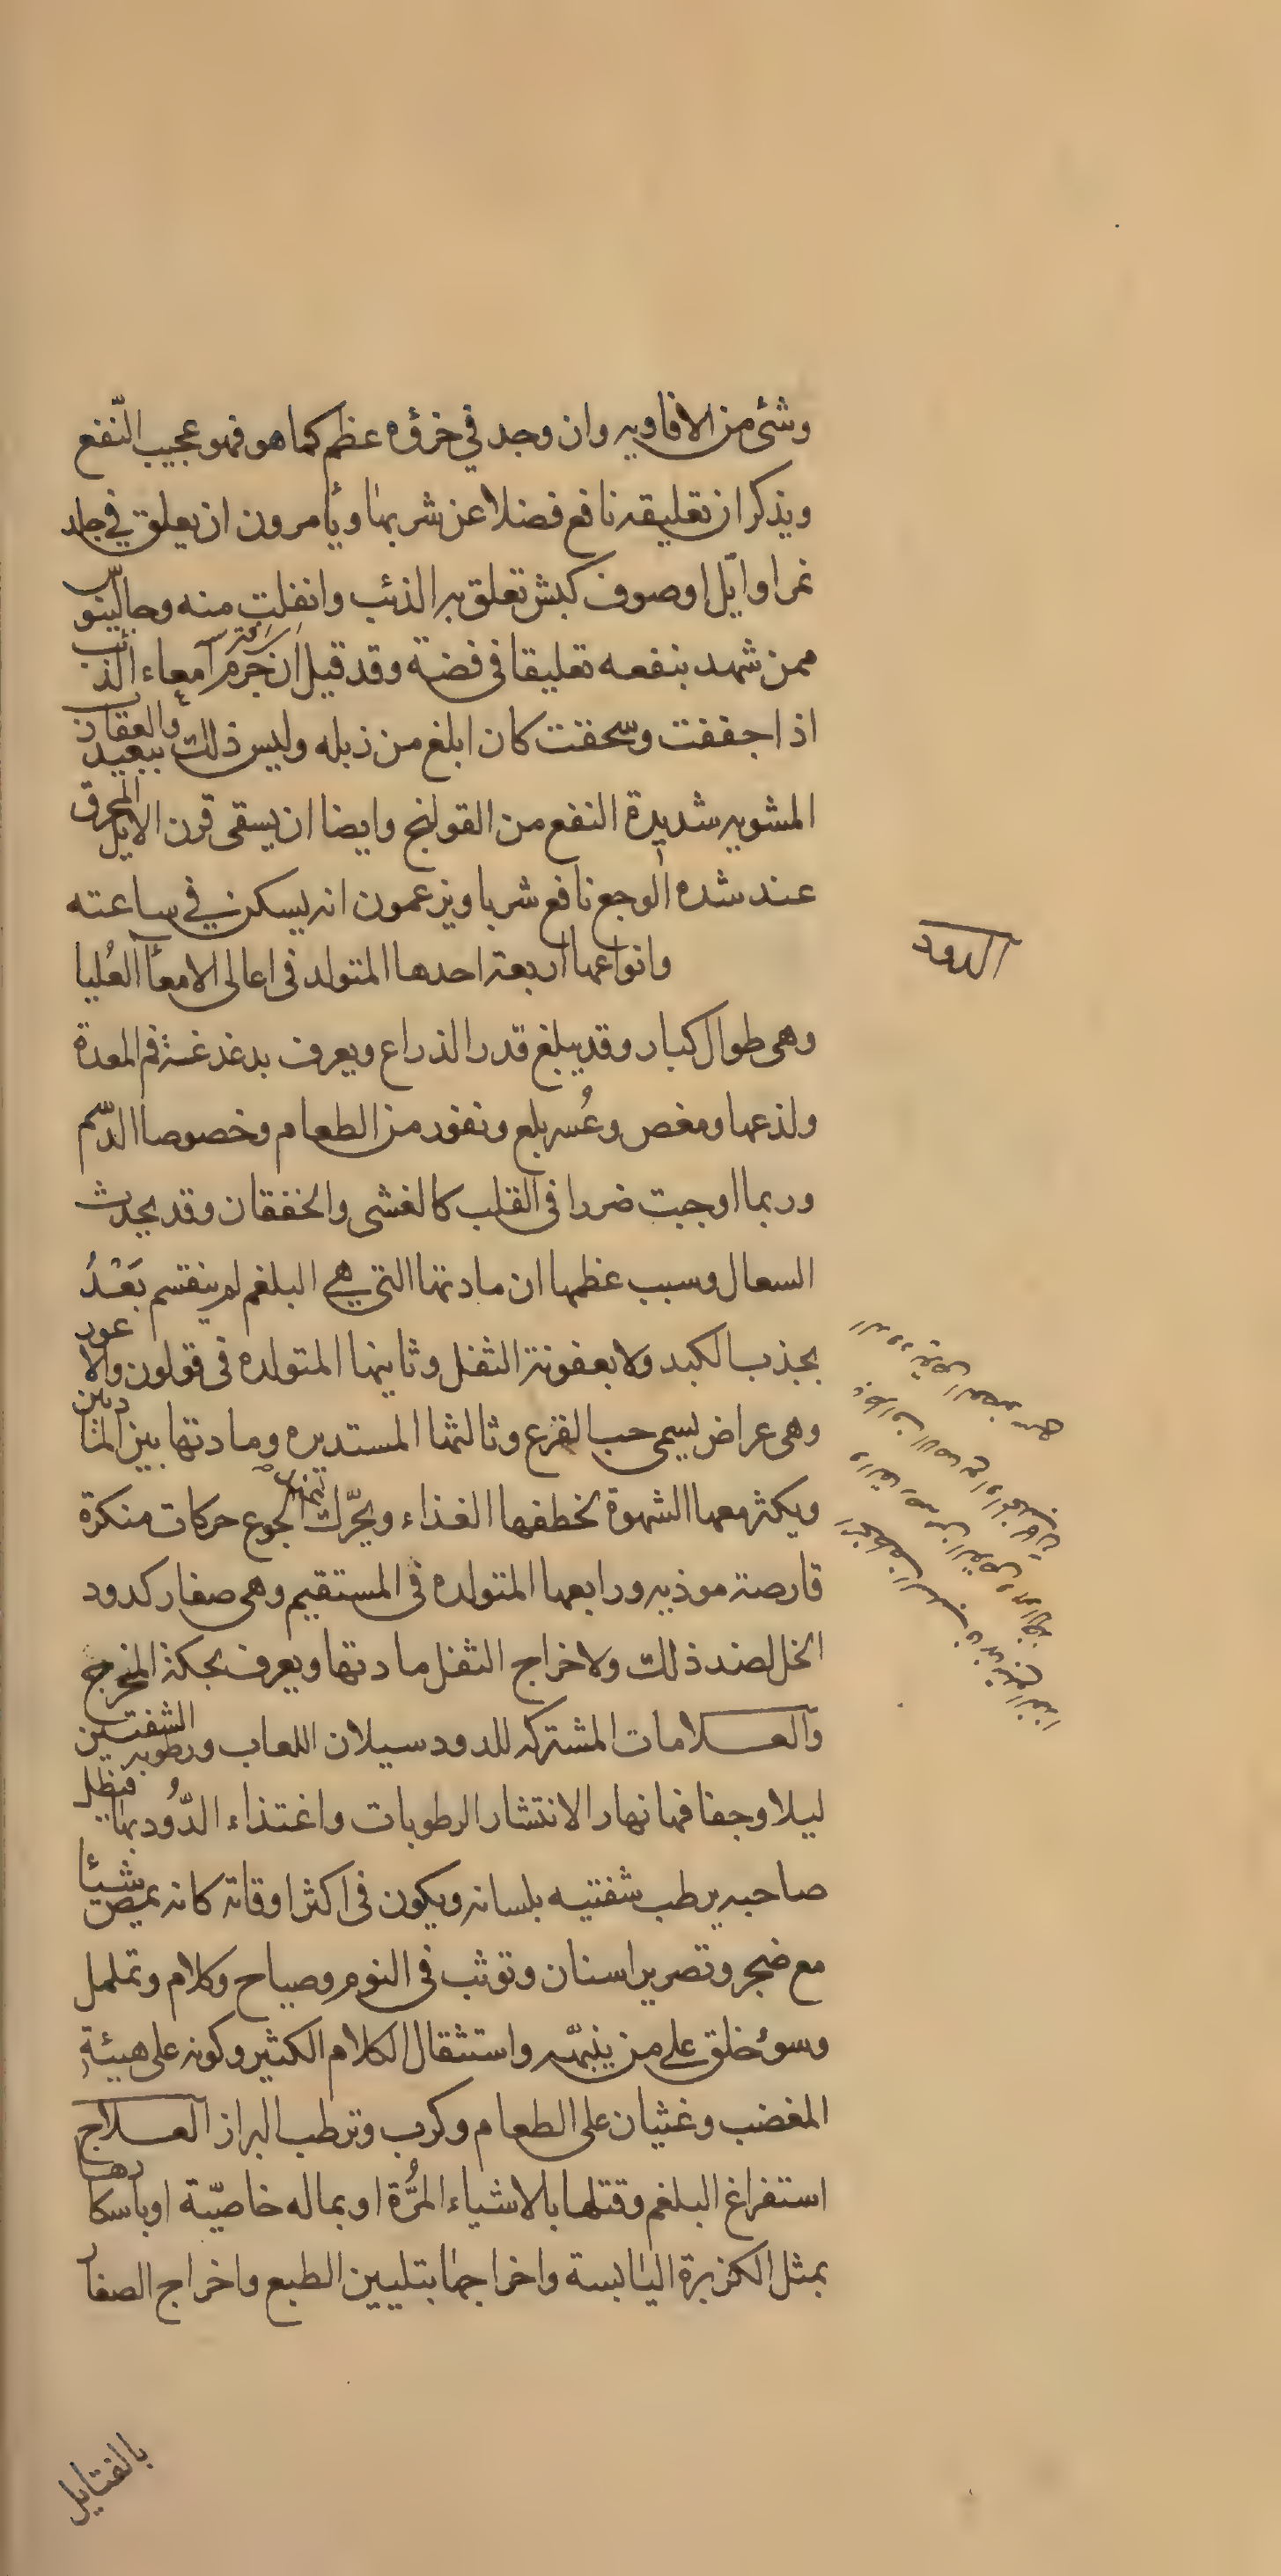 وشئ من الافاويه وان وجد في خرؤه عظم كما هو فهو عجيب النّفع
ويذكر ان تعليقه نافع فضلا عن شربها ويأمرون ان يعلق في جلد
نمر او ايّل او صوف كبش تعلق به الذئب وانفلت منه وجالينوس
ممن شهد بنفعه تعليقا فى فضة وقد قيل ان جرم امعاء الذئب
اذا جففت وسحقت كان ابلغ من زبله وليس ذلك ببعيد والعقارب
المشويه شديدة النفع من القولنج وايضا ان يسقى قرن الايل المحرق
عند شده الوجع نافع شربا ويزعمون انه يسكن في ساعته
الدود
وانواعها اربعة احدها المتولد فى اعالى الامعآ العُليا
وهى طوال كبار وقد يبلغ قدر الذراع ويعرف بدغدغة فم المعدة
ولذعها ومغص وعُسر بلع ونفور من الطعام وخصوصا الدّسم
وربما اوجبت ضررا فى القلب كالغشى والخفقان وقد يحدث
السعال وسبب عظمها ان مادتها التي هي البلغم لم ينقسم بَعْدُ
بجذب الكبد ولا بعفونة الثفل وثانيها المتولده فى قولون والاعور
وهى عراض يسمى حب القرع وثالثها المستديره ومادتها بين المادتين
ويكثر معها الشهوة لخطفها الغذاء ويحرّك الجوع حركات منكرة
قارصة موذيه ورابعها المتولده فى المستقيم وهى صغار كدود
الخل لضد ذلك ولاخراج الثفل مادتها ويعرف بحكة المخرج
والعلامات المشتركه للدود سيلان اللعاب ورطوبه الشفتين
ليلا وجفافها نهارا لانتشار الرطوبات واغتذاء الدّود بها فيظل
صاحبه يرطب شفتيه بلسانه ويكون فى اكثر اوقاته كانه يمص شيئا
مع ضجر وتصرير اسنان وتوثب فى النوم وصياح وكلام وتململ
وسوء خلق على من ينبهّه واستثقال الكلام الكثير وكونه على هيئة
المغضب وغثيان على الطعام وكرب وترطب البراز العلاج
استفراغ البلغم وقتلها بالاشياء المرُّة او بما له خاصيّة او باسكارها
بمثل الكزبرة اليابسة واخراجها بتليين الطبع واخراج الصغار
بالفتايل